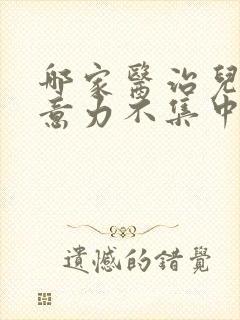 哪家醫治兒
意力不集中
遺憾的錯覺